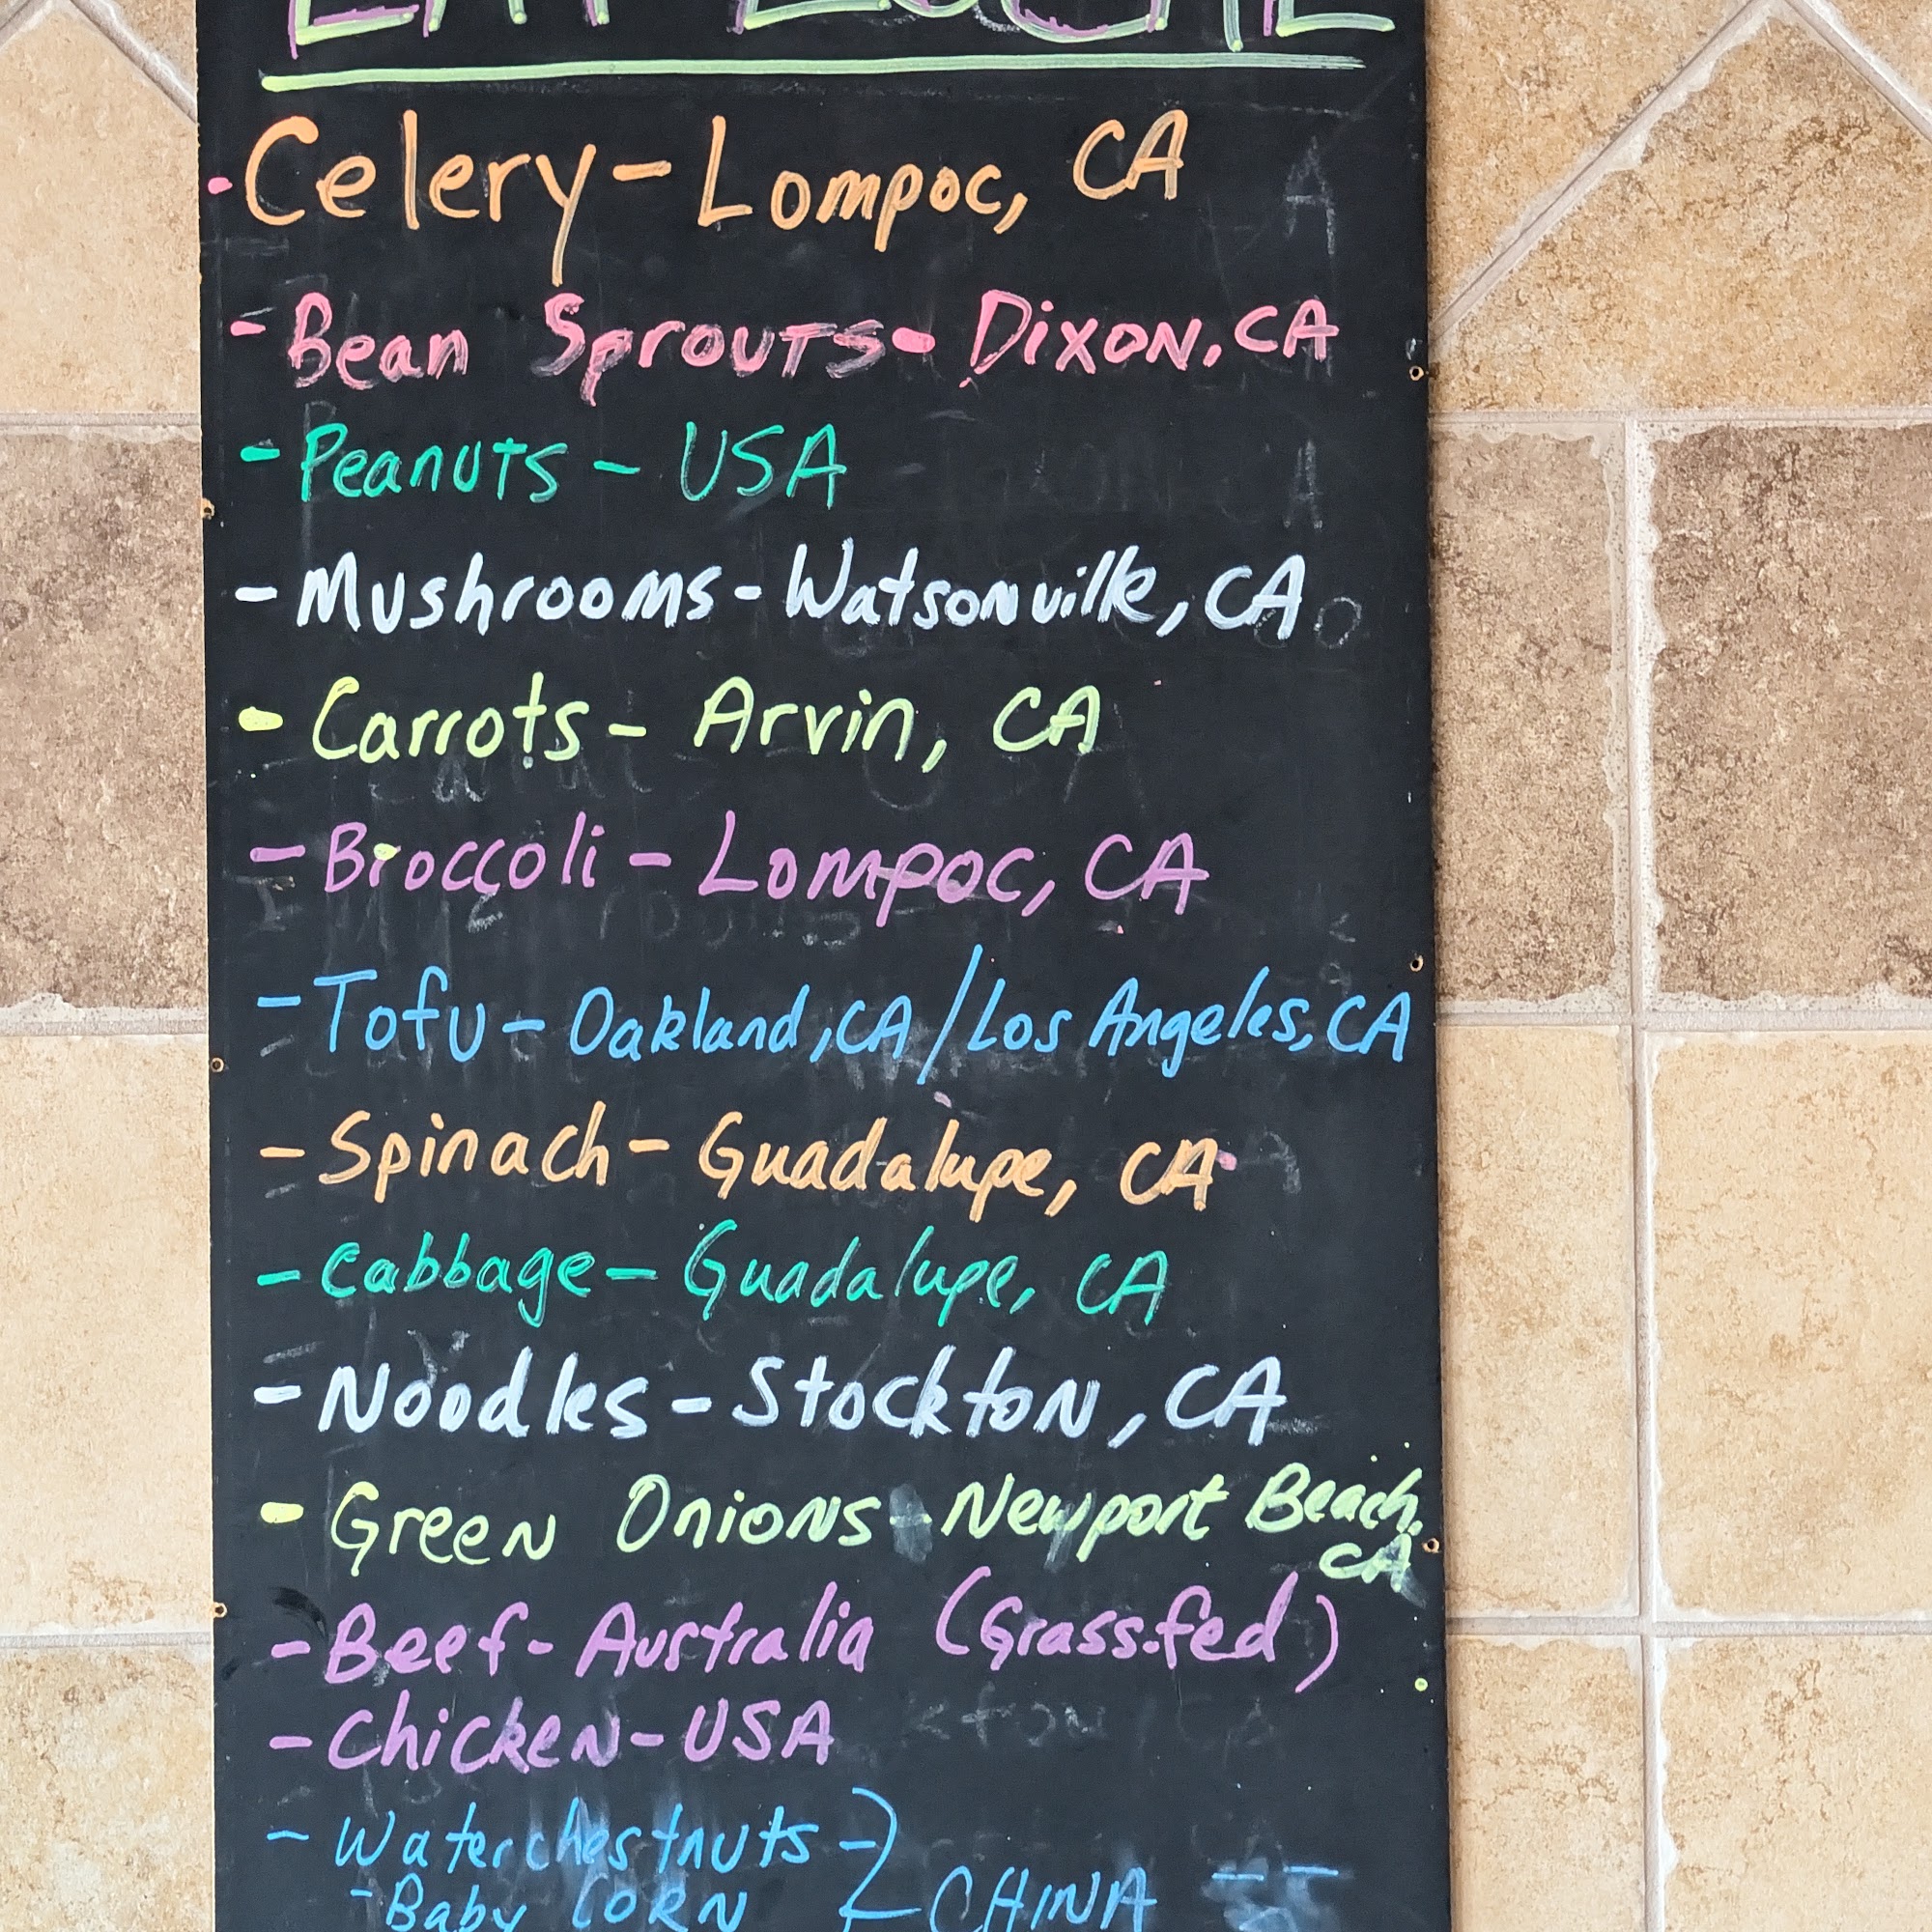 EAT LOCAL
· Celery - Lompoc, CA
- Bean Sprouts - Dixon, CA
- Peanuts - USA
- Mushrooms - Watsonville, CA
- Carrots - Arvin, CA
- Broccoli - Lompoc, CA
- Tofu - Oakland, CA / Los Angeles, CA
- Spinach - Guadalupe, CA
- Cabbage - Guadalupe, CA
- Noodles - Stockton, CA
- Green Onions - Newport Beach,
CA
- Beef - Australia (Grass-fed)
- Chicken - USA
- Water chestnuts -
- Baby CORN } CHINA